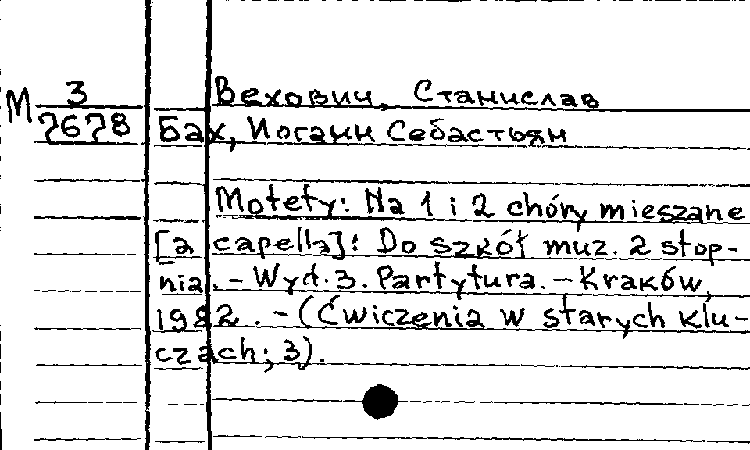 Вехович, Станислав
М 3
7678 Бах, Иоганн Себастьян
Motety: Na 1 i 2 chóry mieszane
[a capella]: Do szkół muz. 2 stop-
nia. - Wyd. 3. Partytura. - Kraków,
1982. - (Ćwiczenia w starych klu-
czach; 3).